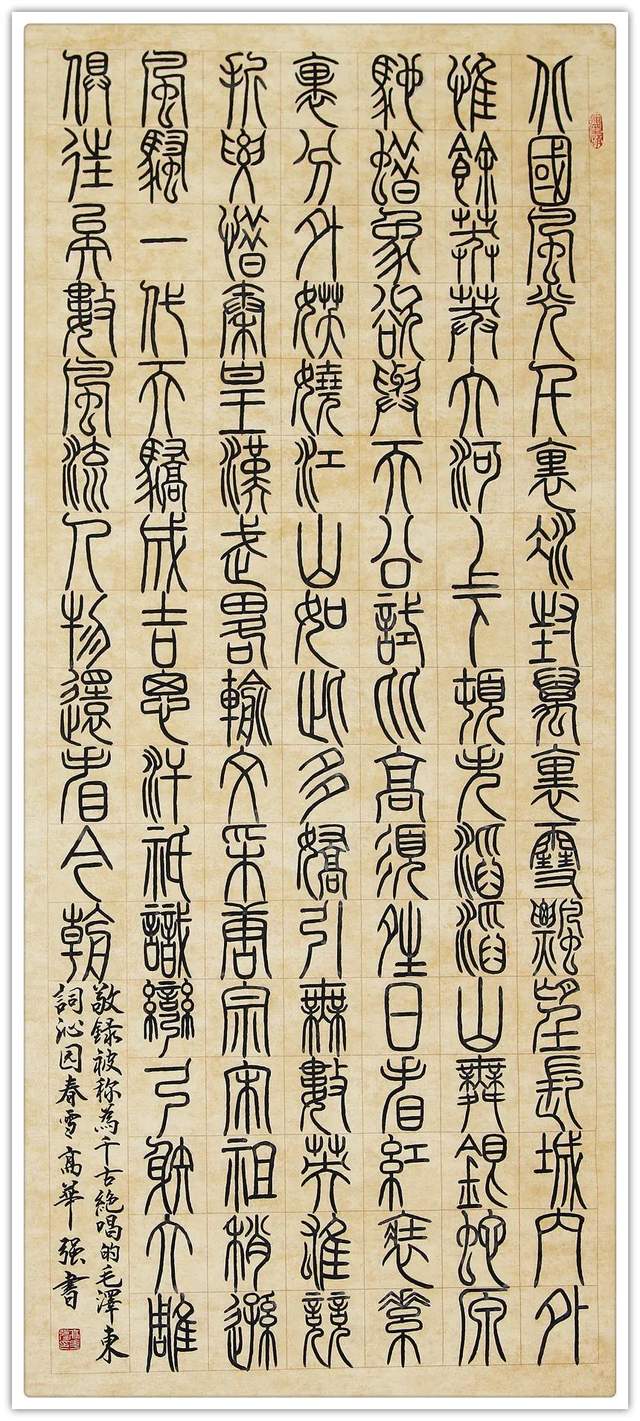 北國風光千裏冰封萬裏雪飄望長城內外
惟餘莽莽大河上下頓失滔滔山舞銀蛇原
馳蜡象欲與天公試比高須晴日看紅裝素
裹分外妖嬈江山如此多嬌引無數英雄競
折腰惜秦皇漢武略輸文采唐宗宋祖稍遜
風騷一代天驕成吉思汗祇識彎弓射大雕
俱往矣數風流人物還看今朝
敬録被称為千古絶唱的毛澤東
詞沁园春雪高華强書